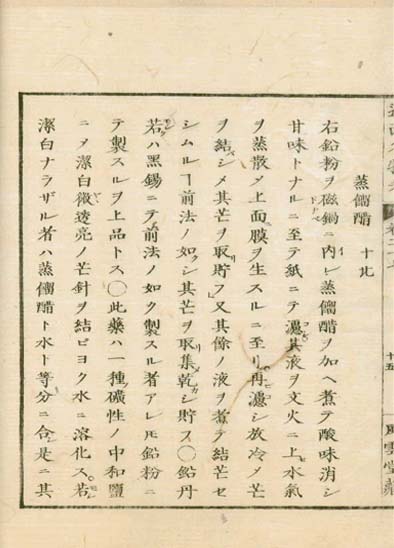 蒸餾醋 十片
右鉛粉ヲ磁鍋ニ内レ蒸餾醋ヲ加ヘ煮テ酸味消シ
甘味トナルニ至テ紙ニテ濾其液ヲ文火ニ上水氣
ヲ蒸散メ上面膜ヲ生スルニ至リ再濾シ放冷メ芒
ヲ結バシメ其芒ヲ取リ貯フ又其餘ノ液ヲ煮テ結芒セ
シムルヿ前法ノ如クシ其芒ヲ取リ集メ乾シ貯ス〇鉛丹
若クハ黒錫ニテ前法ノ如ク製スル者アレ𪜈鉛粉ニ
テ製スルヲ上品トス〇此藥ハ一種礦性ノ中和鹽
ニメ潔白微透亮ノ芒針ヲ結ビヨク水ニ溶化ス若シ
潔白ナラザル者ハ蒸餾醋ト水ト等分ニ合シ是ニ其
十五
風雲堂藏